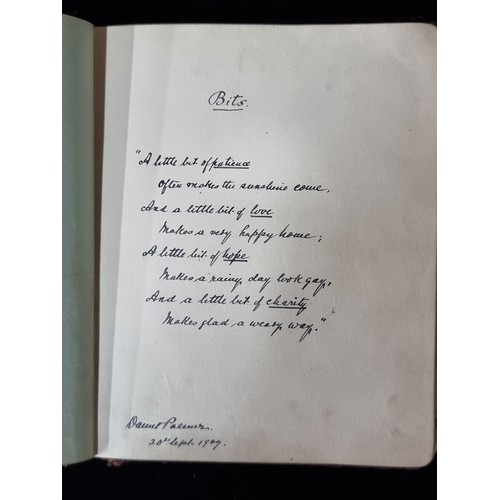 Bits.
"A little bit of patience
Often makes the sunshine come,
And a little bit of love
Makes a very happy home;
A little bit of hope
Makes a rainy day look gay,
And a little bit of charity
Makes glad a weary way."
Daniel Palmer.
20th Sept. 1909.